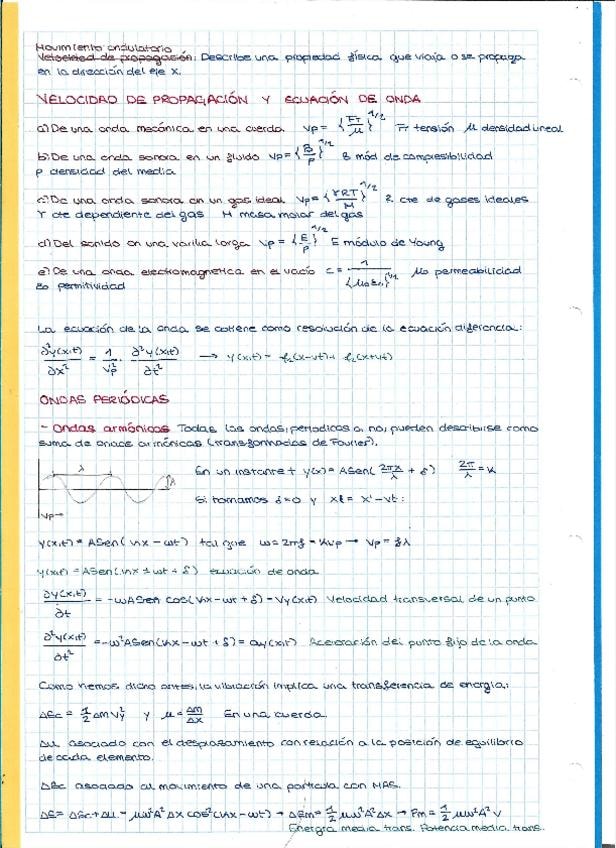 Movimiento ondulatorio
Velocidad de propagación: Describe una propiedad física que viaja o se propaga
en la dirección del eje x.
VELOCIDAD DE PROPAGACIÓN Y ECUACIÓN DE ONDA
a) De una onda mecánica en una cuerda vp = {FT/μ}^1/2 FT tensión μ densidad lineal
b) De una onda sonora en un fluido vp = {B/ρ}^1/2 B mód de compresibilidad
ρ densidad del media
c) De una onda sonora en un gas ideal vp = {γRT/M}^1/2 R cte de gases ideales
γ cte dependiente del gas M masa molar del gas
d) Del sonido en una varilla larga vp = {E/ρ}^1/2 E módulo de Young
e) De una onda electromagnetica en el vacío c = 1/{μ0ε0}^1/2 μ0 permeabilidad
ε0 permitividad
La ecuación de la onda se obtiene como resolución de la ecuación diferencial:
∂²y(x,t)/∂x² = 1/vp² · ∂²y(x,t)/∂t² → y(x,t) =
ONDAS PERIÓDICAS
- Ondas armónicas Todas las ondas, periodicas o no, pueden describirse como
suma de ondas armónicas (transformadas de Fourier).
λ A
En un instante t y(x) = ASen(2πx/λ + δ) 2π/λ = K
Vp→
Si tomamos δ=0 y = x' - vt:
y(x,t) = ASen(kx - ωt) tal que ω = 2πf = Kvp → vp = fλ
y(x,t) = ASen(kx ± ωt + δ) ecuación de onda
∂y(x,t)/∂t = -ωA cos(kx - ωt + δ) = Vy(x,t) Velocidad transversal de un punto
∂²y(x,t)/∂t² = -ω²ASen(kx - ωt + δ) = ay(x,t) Aceleración del punto fijo de la onda
Como hemos dicho antes, la vibración implica una transferencia de energía:
ΔEc = 1/2 Δm Vy² y μ = Δm/Δx En una cuerda
Δu asociado con el desplazamiento con relación a la posición de equilibrio
de cada elemento.
ΔEc asociado al movimiento de una particula con MAS.
ΔE = ΔEc + Δu = μω²A² Δx cos²(kx - ωt) → ΔEm = 1/2 μω²A²Δx → Pm = 1/2 μω²A²V
Energía media trans. Potencia media trans.